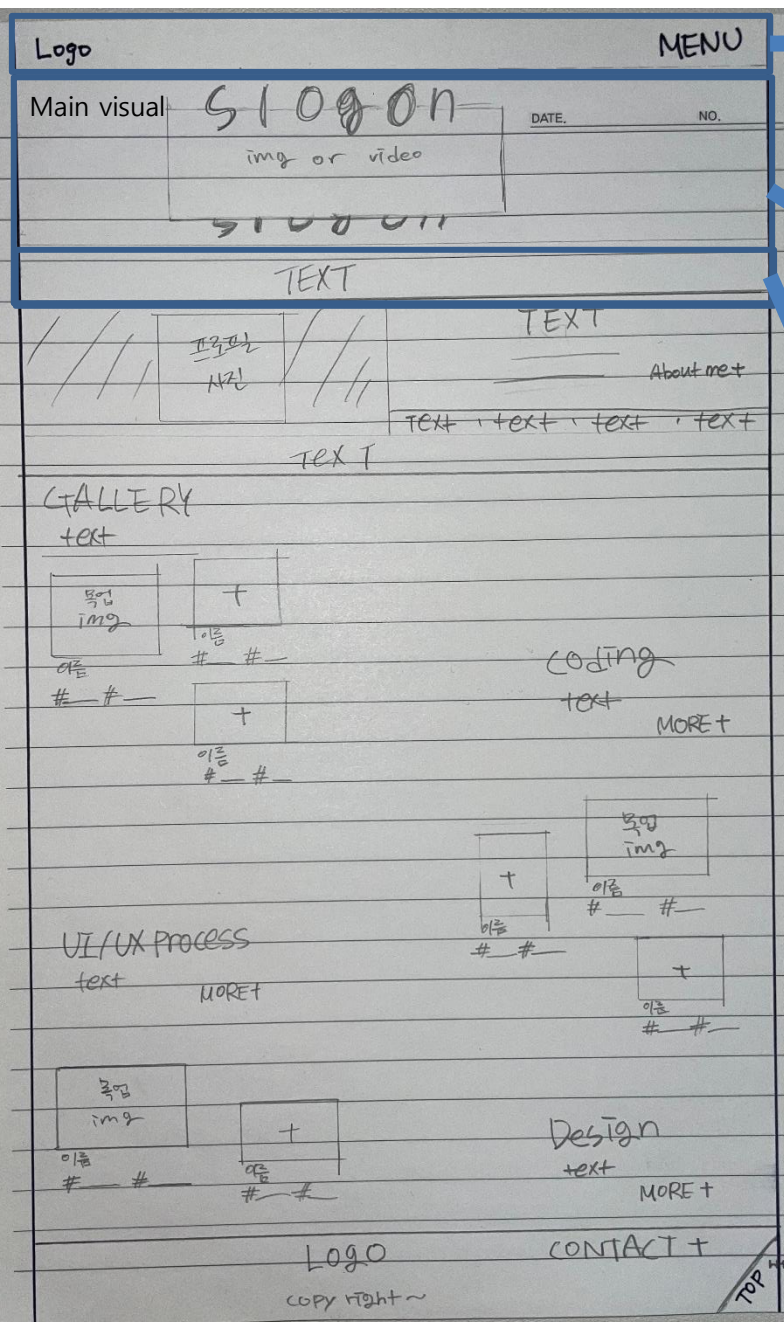 Logo MENU
Main visual
Slogan
DATE. NO.
img or video
TEXT
TEXT
프로필
사진
About me+
Text · text · text · text
Tex T
GALLERY
text
목업
img
+
이름
# #
이름
# #
+
이름
# #
coding
text
MORE+
목업
img
이름
# #
+
이름
# #
+
이름
# #
UI/UX process
text
MORE+
목업
img
이름
# #
+
이름
# #
Design
text
MORE+
LOGO
CONTACT +
copy right~
TOP